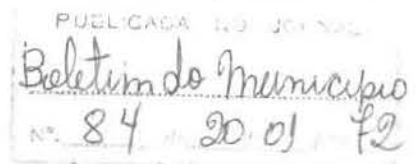 PUBLICADA NO JORNAL
Boletim do Municipio
Nº. 84 20 01 72